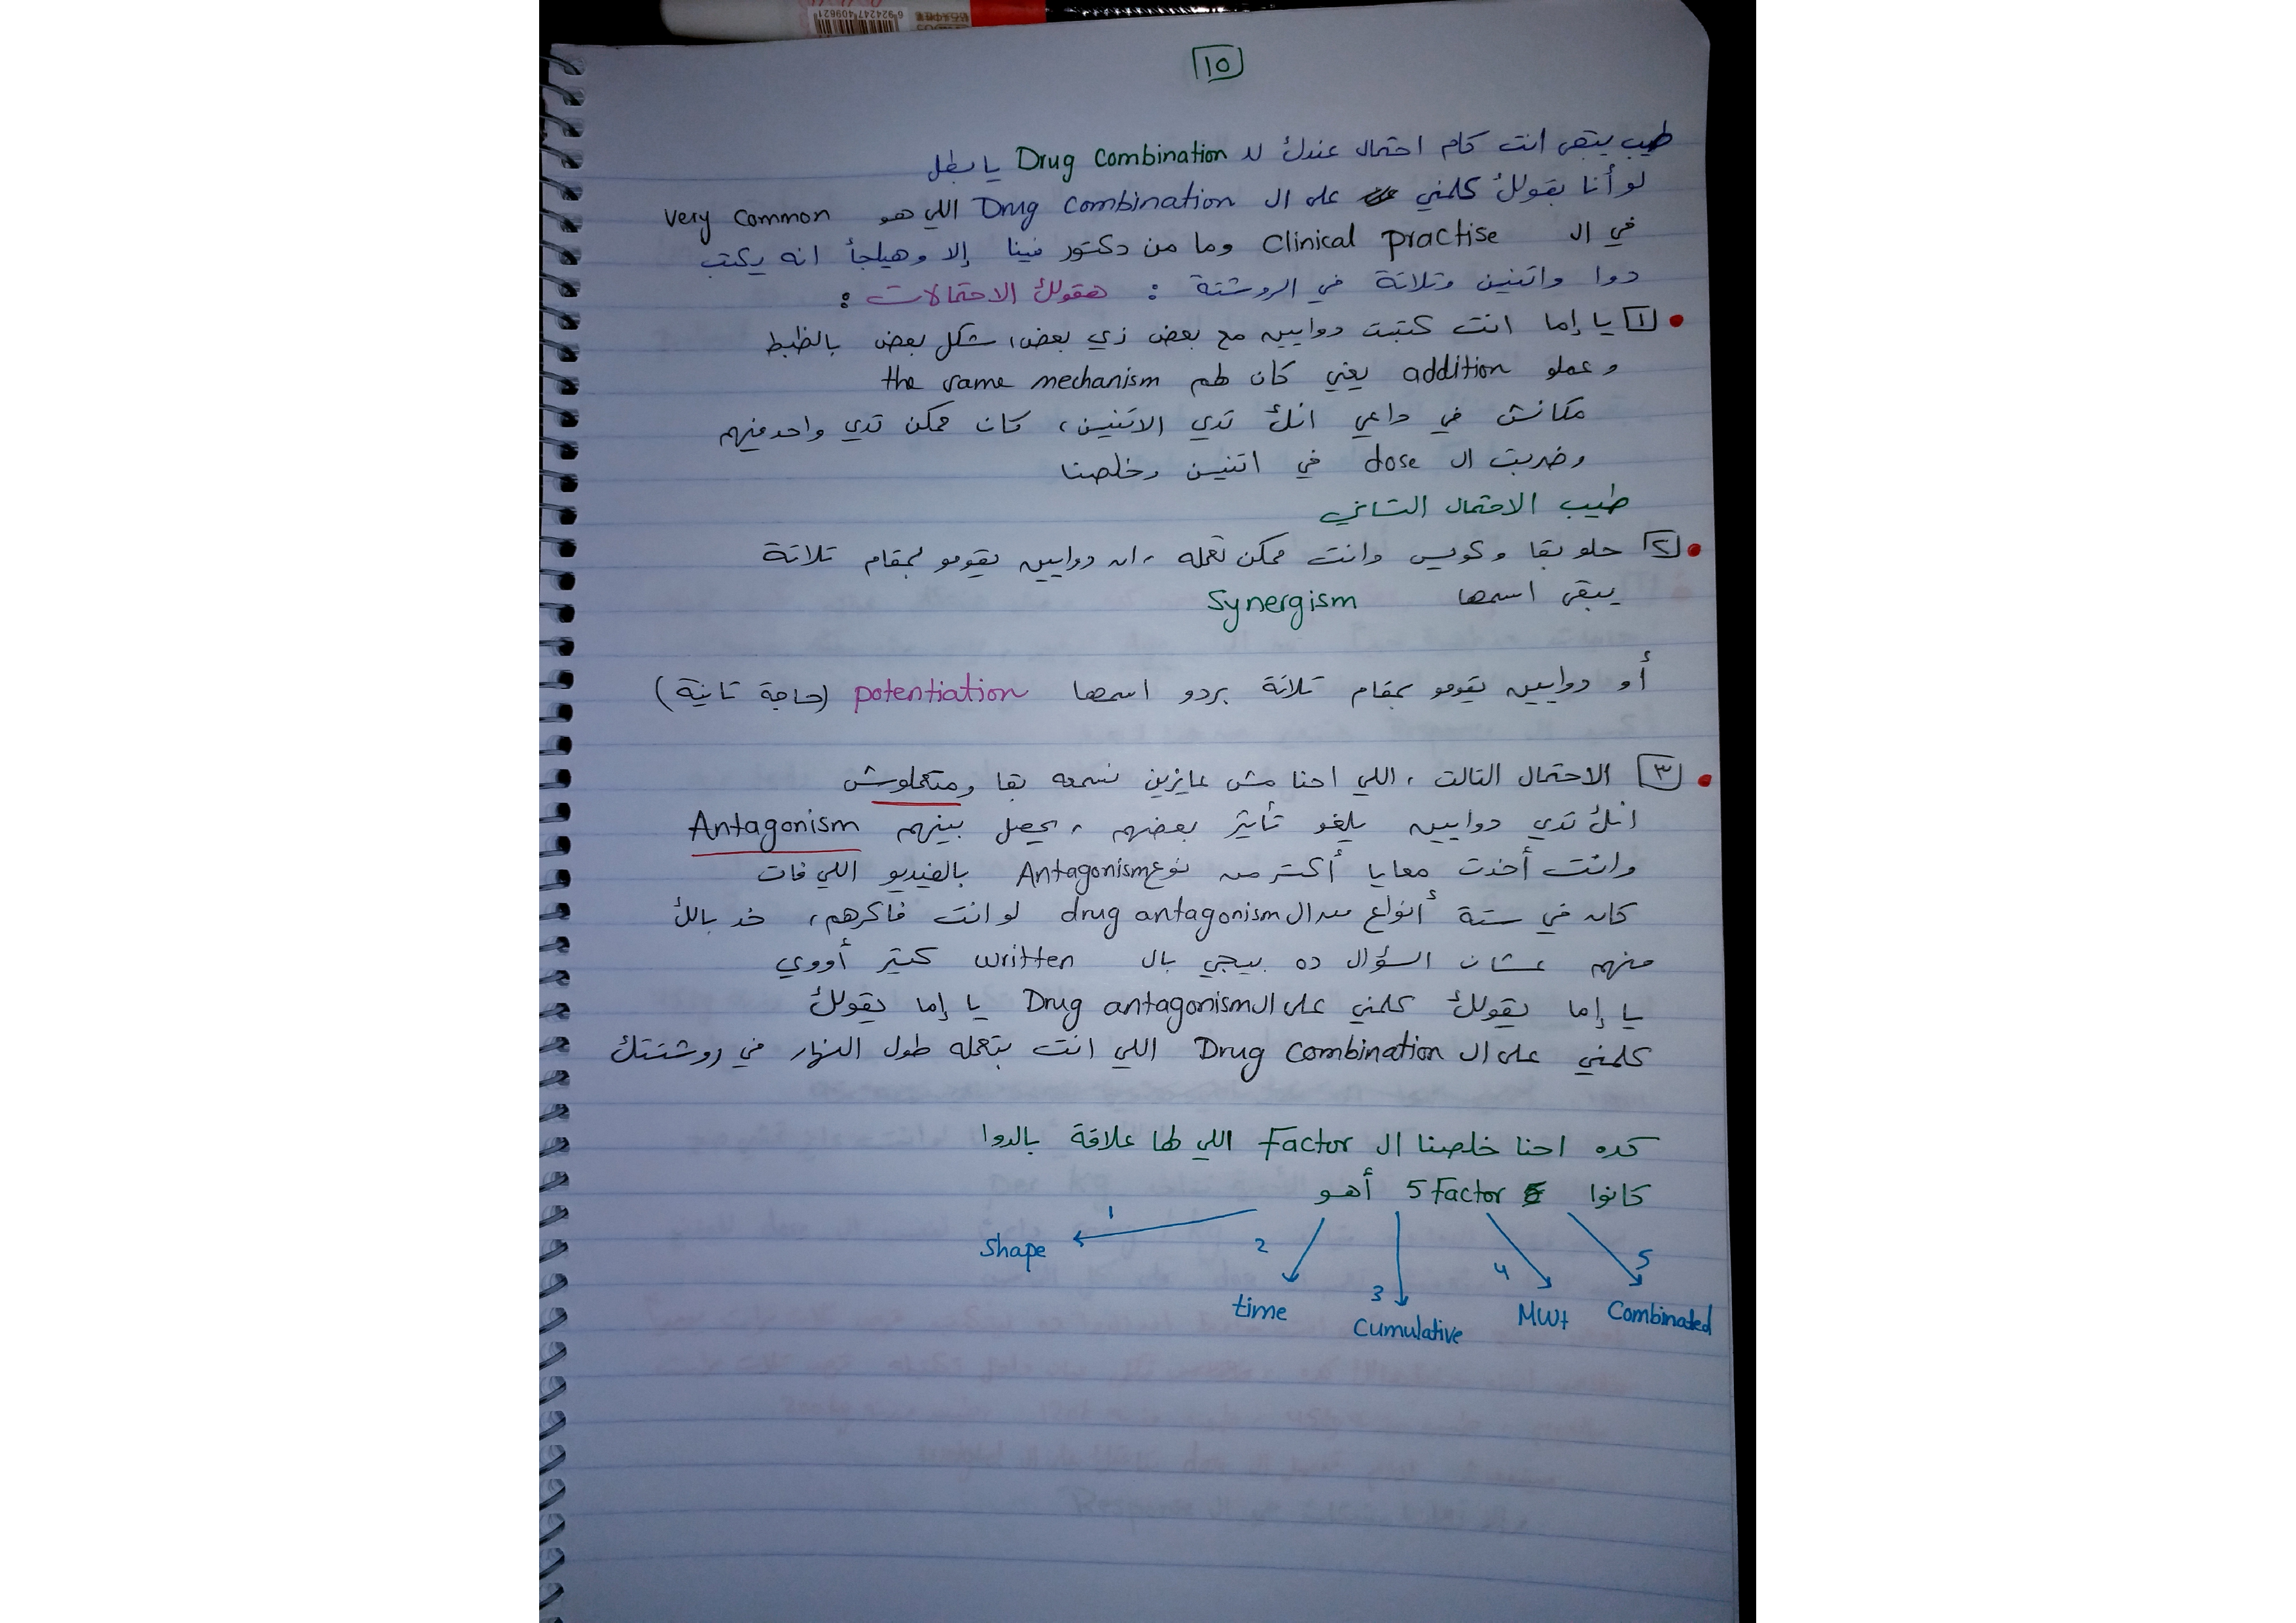 ١٥
طيب يبقى انت كام احتمال عندك لـ Drug Combination يا بطل
لو أنا بقولك كلمني على ال Drug Combination اللي هو very common
في ال Clinical practise وما من دكتور فينا إلا وهيلجأ انه يكتب
دوا واتنين وتلاتة في الروشتة : هقولك الاحتمالات :
١ يا إما انت كتبت دوايين مع بعض زي بعض، شكل بعض بالظبط
وعملو addition يعني كان لهم the same mechanism
مكانش في داعي انك تدي الاتنين، كان ممكن تدي واحد منهم
وضربت ال dose في اتنين وخلصنا
طيب الاحتمال التاني
٢ حلو بقا وكويس وانت ممكن تعمله، ان دوايين يقومو بمقام تلاتة
يبقى اسمها Synergism
أو دوايين يقومو بمقام تلاتة بردو اسمها potentiation (حاجة تانية)
٣ الاحتمال التالت، اللي احنا مش عايزين نسمعه بقا ومتعملوش
انك تدي دوايين يلغو تأثير بعضهم، يحصل بينهم Antagonism
وانت أخدت معايا أكتر من نوع Antagonism بالفيديو اللي فات
كان في ستة أنواع من ال drug antagonism لو انت فاكرهم، خد بالك
منهم عشان السؤال ده بيجي بال written كتير أووي
يا إما يقولك كلمني على ال Drug antagonism يا إما يقولك
كلمني على ال Drug Combination اللي انت بتعمله طول النهار في روشتتك
كده احنا خلصنا ال Factor اللي لها علاقة بالدوا
كانوا 5 Factor أهو
1 Shape
2 time
3 Cumulative
4 MWt
5 Combinated
6 924247 409821